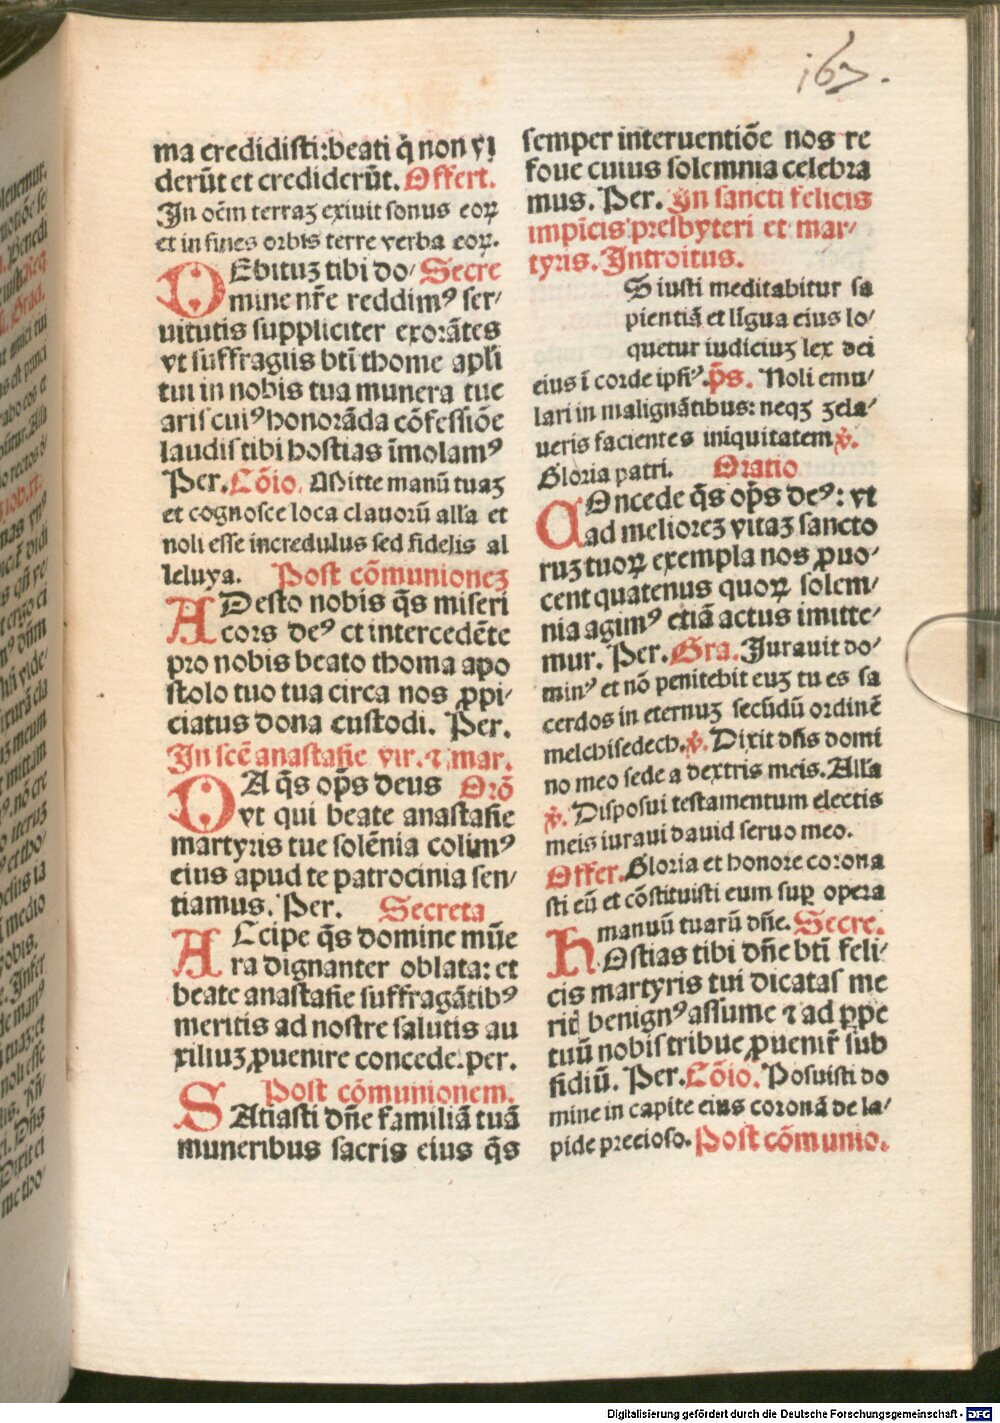 167.
ma credidisti:beati q̇ non vi
derūt et crediderūt. Offert.
In oēm terraꝫ exiuit sonus eoꝝ
et in fines orbis terre verba eoꝝ.
DEbituꝫ tibi do/ Secre
mine nr̄e reddimꝰ ser/
uitutis suppliciter exorātes
vt suffragiis bt̄i thome apl̄i
tui in nobis tua munera tue
aris cuiꝰ honorāda cōfessiōe
laudis tibi hostias īmolamꝰ
Per. Cōio. Mitte manū tuaꝫ
et cognosce loca clauorū alla et
noli esse incredulus sed fidelis al
leluya. Post cōmunioneꝫ
ADesto nobis q̄s miseri
cors deꝰ et intercedēte
pro nobis beato thoma apo
stolo tuo tua circa nos ꝓpi/
ciatus dona custodi. Per.
In scē anastasie vir. ⁊ mar.
DA q̄s op̄s deus Orō
vt qui beate anastasie
martyris tue solēnia colimꝰ
eius apud te patrocinia sen/
tiamus. Per. Secreta
ACcipe q̄s domine mūe
ra dignanter oblata: et
beate anastasie suffragātibꝰ
meritis ad nostre salutis au
xiliuꝫ ꝓuenire concede. per.
Post cōmunionem.
SAtiasti dn̄e familiā tuā
muneribus sacris eius q̄s
semper interuentiōe nos re
foue cuius solemnia celebra
mus. Per. In sancti felicis
impīcis presbyteri et mar/
tyris. Introitus.
S iusti meditabitur sa
pientiā et līgua eius lo/
quetur iudiciuꝫ lex dei
eius ī corde ipsiꝰ. p̄s. Noli emu/
lari in malignātibus: neqꝫ ꝫela/
ueris facientes iniquitatem v̇.
Gloria patri. Oratio
COncede q̄s op̄s deꝰ: vt
ad melioreꝫ vitaꝫ sancto
ruꝫ tuoꝝ exempla nos ꝓuo/
cent quatenus quoꝝ solem/
nia agimꝰ etiā actus imitte/
mur. Per. Gra. Iurauit do/
minꝰ et nō penitebit euꝫ tu es sa
cerdos in eternuꝫ secūdū ordinē
melchisedech. v̇. Dixit dn̄s domi
no meo sede a dextris meis. Alla
v̇. Disposui testamentum electis
meis iuraui dauid seruo meo.
Offer. Gloria et honore corona
sti eū et cōstituisti eum suꝑ opera
manuū tuarū dn̄e. Secre.
HOstias tibi dn̄e bt̄i feli/
cis martyris tui dicatas me
rit̄ benignꝰ assume ⁊ ad ꝑpe
tuū nobis tribue ꝓuenir̄ sub
sidiū. Per. Cōio. Posuisti do
mine in capite eius coronā de la/
pide precioso. Post cōmunio.
Digitalisierung gefördert durch die Deutsche Forschungsgemeinschaft - DFG